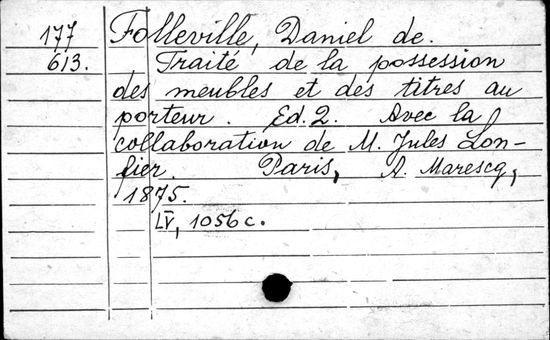 177 Folleville, Daniel de.
613. Traité de la possession
des meubles et des titres au
porteur. Ed. 2. Avec la
collaboration de M. Jules Lon-
fier. Paris, A. Marescq,
1875.
LV, 1056 c.